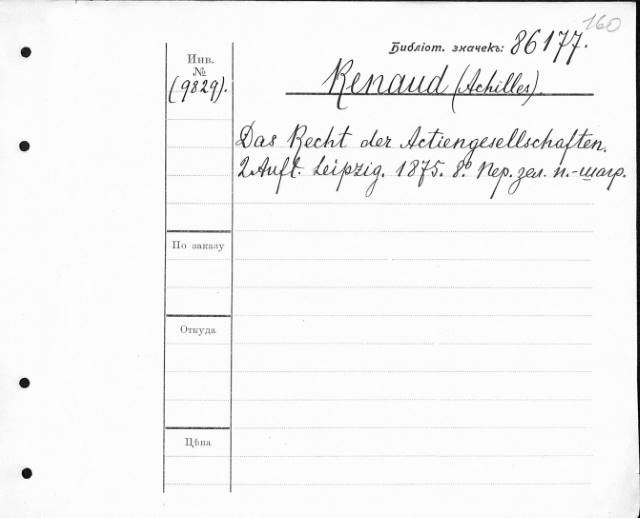 160
Библіот. значекъ: 86177.
Инв.
№
(9829).
Renaud (Achilles).
Das Recht der Actiengesellschaften.
2 Aufl. Leipzig. 1875. 8º. Пер. зел. п.-шагр.
По заказу
Откуда
Цѣна